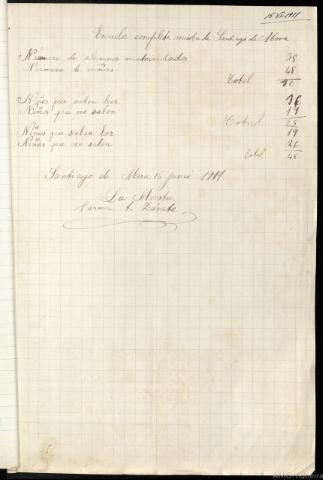 15-VI-1911
Escuela completa mixta de Santiago de Mera
Número de alumnos matriculados 35
Número de niñas 45
Total
Niños que saben leer 16
Niños que no saben 19
Total 35
Niñas que saben leer 19
Niñas que no saben 26
Total 45
Santiago de Mera 15 junio 1911
La Maestra
Carmen Zárate